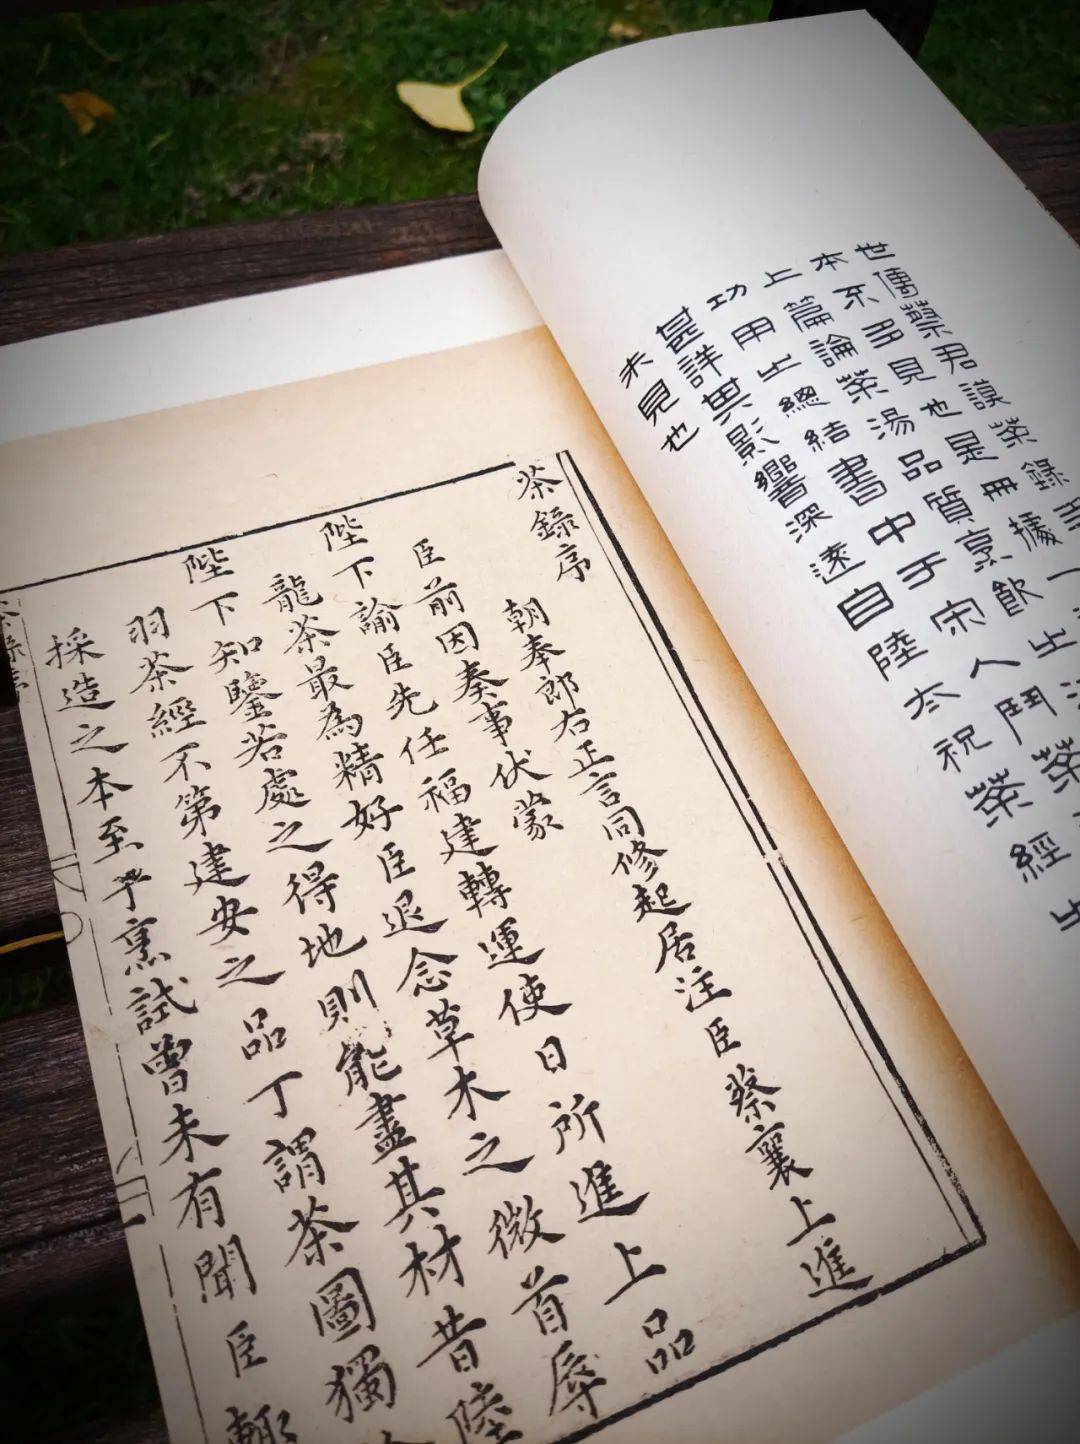 世傳蔡君謨茶錄
本不多見也是冊據一
上篇論茶湯品質烹飲之法
功用之總結書中于宋人鬥茶
甚詳其影響深遠自陸太祝茶經之
未見也
茶錄序
朝奉郎右正言同修起居注臣蔡襄上進
臣前因奏事伏蒙
陛下諭臣先任福建轉運使日所進上品
龍茶最為精好臣退念草木之微首辱
陛下知鑒若處之得地則能盡其材昔陸
羽茶經不第建安之品丁謂茶圖獨
採造之本至于烹試曾未有聞臣輒